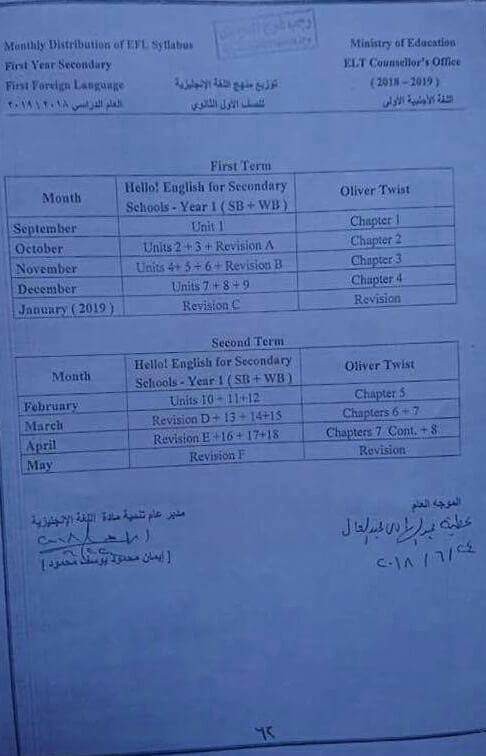 Monthly Distribution of EFL Syllabus
Ministry of Education
First Year Secondary
ELT Counsellor's Office
First Foreign Language
توزيع منهج اللغة الإنجليزية
( 2018 – 2019 )
العام الدراسي ٢٠١٨ / ٢٠١٩
للصف الأول الثانوي
اللغة الأجنبية الأولى
First Term
Month
Hello! English for Secondary Schools - Year 1 ( SB + WB )
Oliver Twist
September
Unit 1
Chapter 1
October
Units 2 + 3 + Revision A
Chapter 2
November
Units 4+ 5 + 6 + Revision B
Chapter 3
December
Units 7 + 8 + 9
Chapter 4
January ( 2019 )
Revision C
Revision
Second Term
Month
Hello! English for Secondary Schools - Year 1 ( SB + WB )
Oliver Twist
February
Units 10 + 11+12
Chapter 5
March
Revision D + 13 + 14+15
Chapters 6 + 7
April
Revision E +16 + 17+18
Chapters 7 Cont. + 8
May
Revision F
Revision
الموجه العام
مدير عام تنمية مادة اللغة الإنجليزية
[ إيمان محمود يوسف محمود ]
٢٠١٨ / ٦ / ٢٤
٦٢